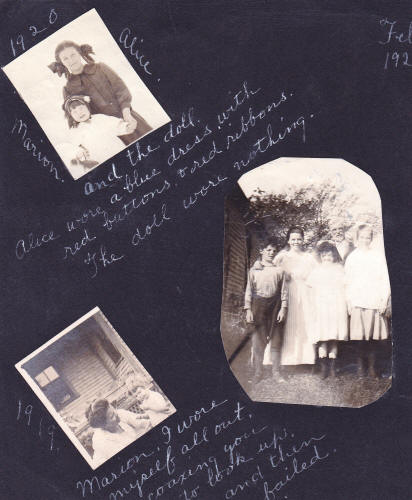 1920
Alice.
Marion
and the doll.
Alice wore a blue dress, with
red buttons & red ribbons.
The doll wore nothing.
Fe
192
1919.
Marion. I wore
myself all out
coaxing you
to look up.
and then
failed.